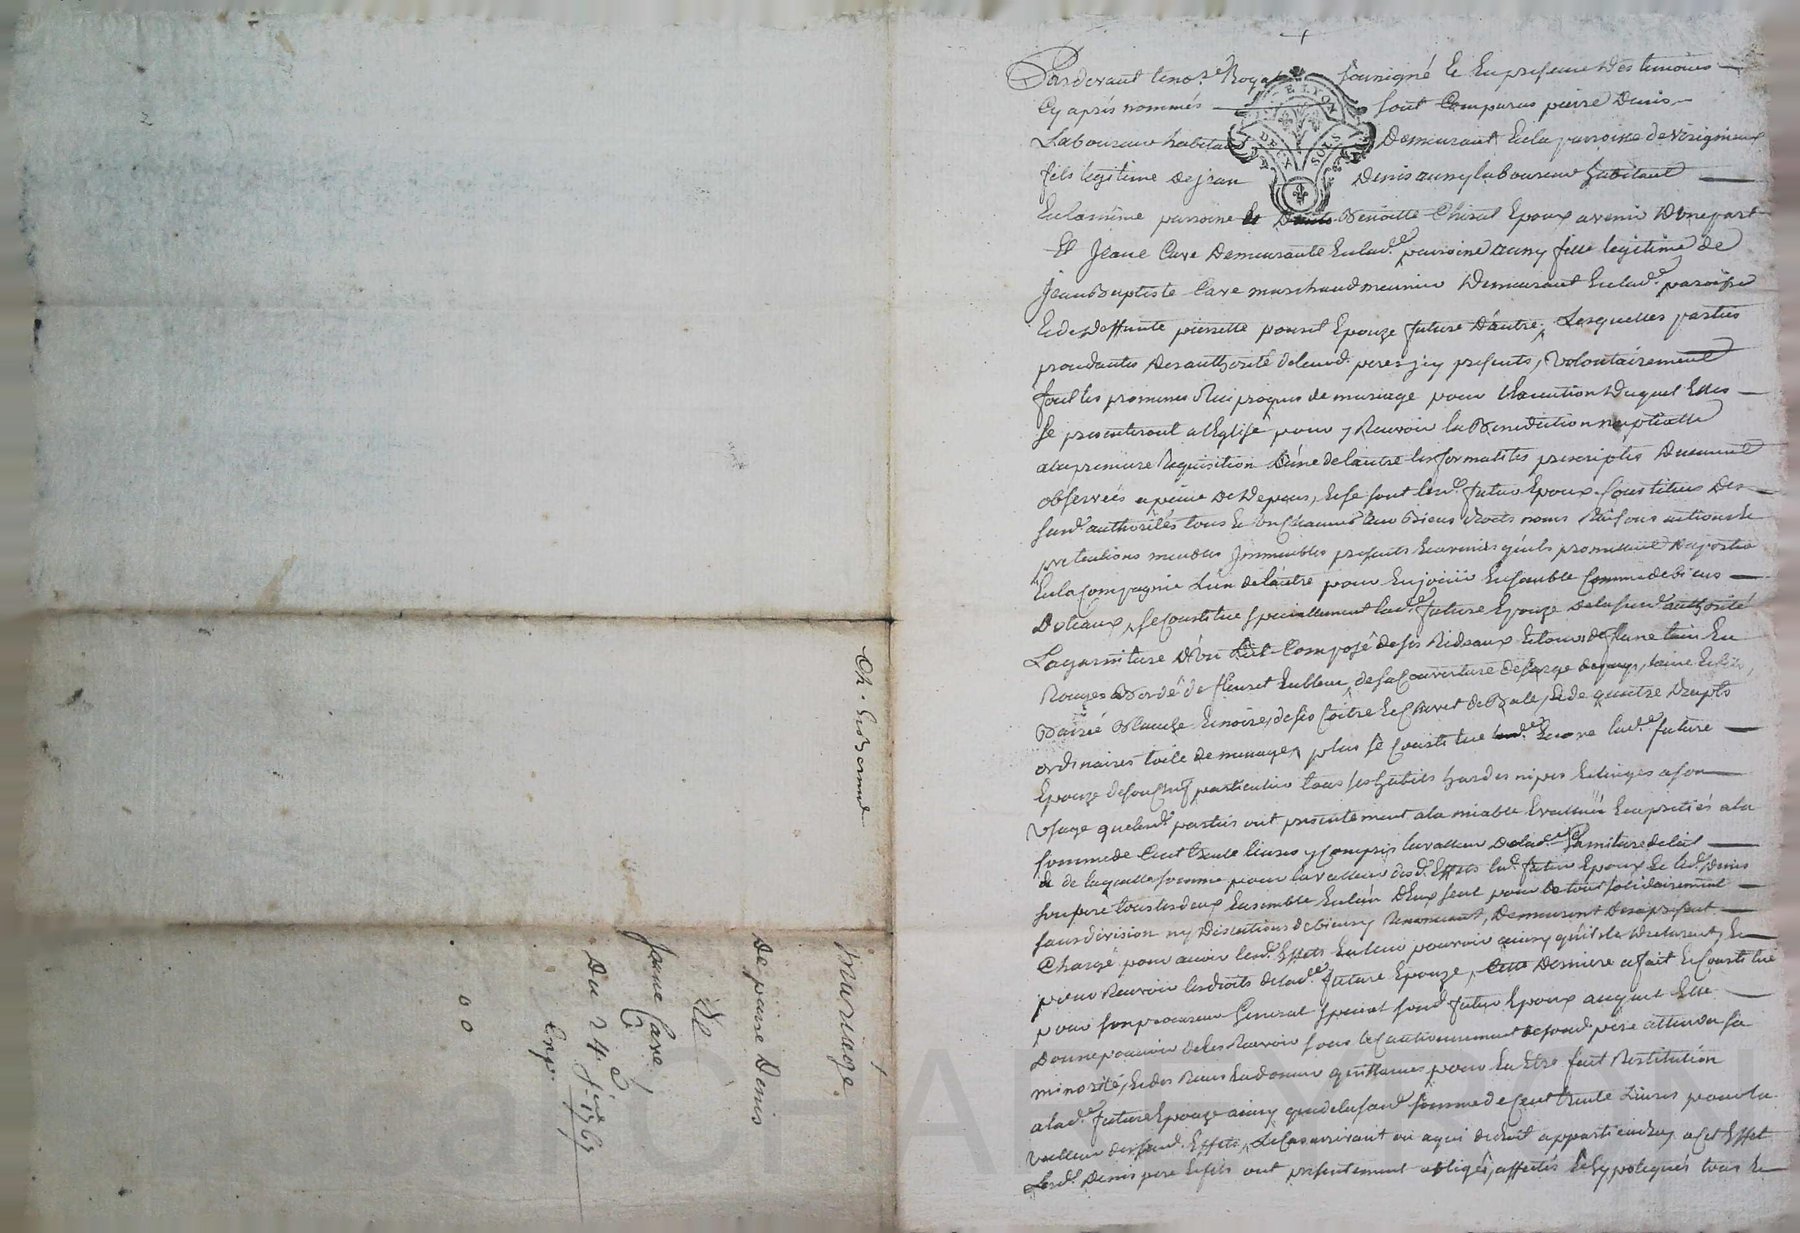 mariage
De pierre Denis
Et
Jeane Cave
Du 24e
Exp.
Ch. 
Pardevant le no.re Royal soussigné Et En presence des temoins
Cy après nommés sont Comparus pierre Denis
Laboureur habitant Demeurant En la parroisse de
fils legitime de jean Denis aussy laboureur habitant
En la même parroisse Et Benoitte Epoux avenir D'une part
Et Jeane Cave Demeurante En lad.e parroisse aussy fille legitime de
Jean Baptiste Cave marchand meunier Demeurant En lad.e paroisse
Et de Deffunte pierrette Epouze future D'autre, Lesquelles parties
procedantes De l'authorité de leurs d. peres icy presents, volontairement
font les promesses Reciproques de mariage pour l'Execution Duquel Elles
se presenteront a l'Eglise pour y Recevoir la Benediction nuptialle
a la premiere Requisition L'une de l'autre les formalités prescriptes Duement
observées a peine de Depens, Et se sont les d. futurs Epoux Constitués Des
sus d. authorités tous Et Un Chacuns leurs Biens droits noms Raisons actions Et
pretentions meubles Immeubles presents Et avenir qu'ils promettent aporter
En la Compagnie L'un de l'autre pour En jouir Ensemble Comme de biens
Dotaux, se Constitue specialement lad.e future Epouze De la sus d. authorité
La garniture D'un Lit Composé de ses Rideaux Et tour de laine teint En
Rouge Bordé de fleuret En bleu, de sa Couverture de serge laine
Blanche Et noire, de sa Coitre Et Chevet de Bale, Et de quatre Draps
ordinaires toile de menage, plus se Constitue Encore lad.e future
Epouze de son Chef particulier tous ses habits hardes nipes Et linges a son
Usage que les d. parties ont presentement a l'amiable Evalués Et apreciés a la
somme de Cent trente livres y Compris la valleur de lad.e Garniture de lit
de laquelle somme pour la valleur des d. Effets led. futur Epoux Et led. Denis
son pere tous les deux Ensemble Et L'un D'Eux seul pour le tout solidairement
sans division ny Discutions de biens y Renoncant, Demeurent Des a present
Chargé pour avoir les d. Effets En leur pouvoir ainsy qu'ils le Declarent, Et
pour Recevoir les droits de lad.e future Epouze, Cette Derniere a fait Et Constitué
pour son procureur General special son d. futur Epoux auquel Elle
Donne pouvoir de les Recevoir sous le Cautionnement de son d. pere attendu sa
minorité, Et des Recus En donner quittances pour En Etre fait Restitution
a lad.e future Epouze ainsy que de la sus d. somme de Cent trente Livres pour la
valleur des sus d. Effets, le Cas arrivant ou a qui de droit appartiendra, a Cet Effet
Les d. Denis pere Et fils ont presentement obligés, affectés Et hypotequés tous Et